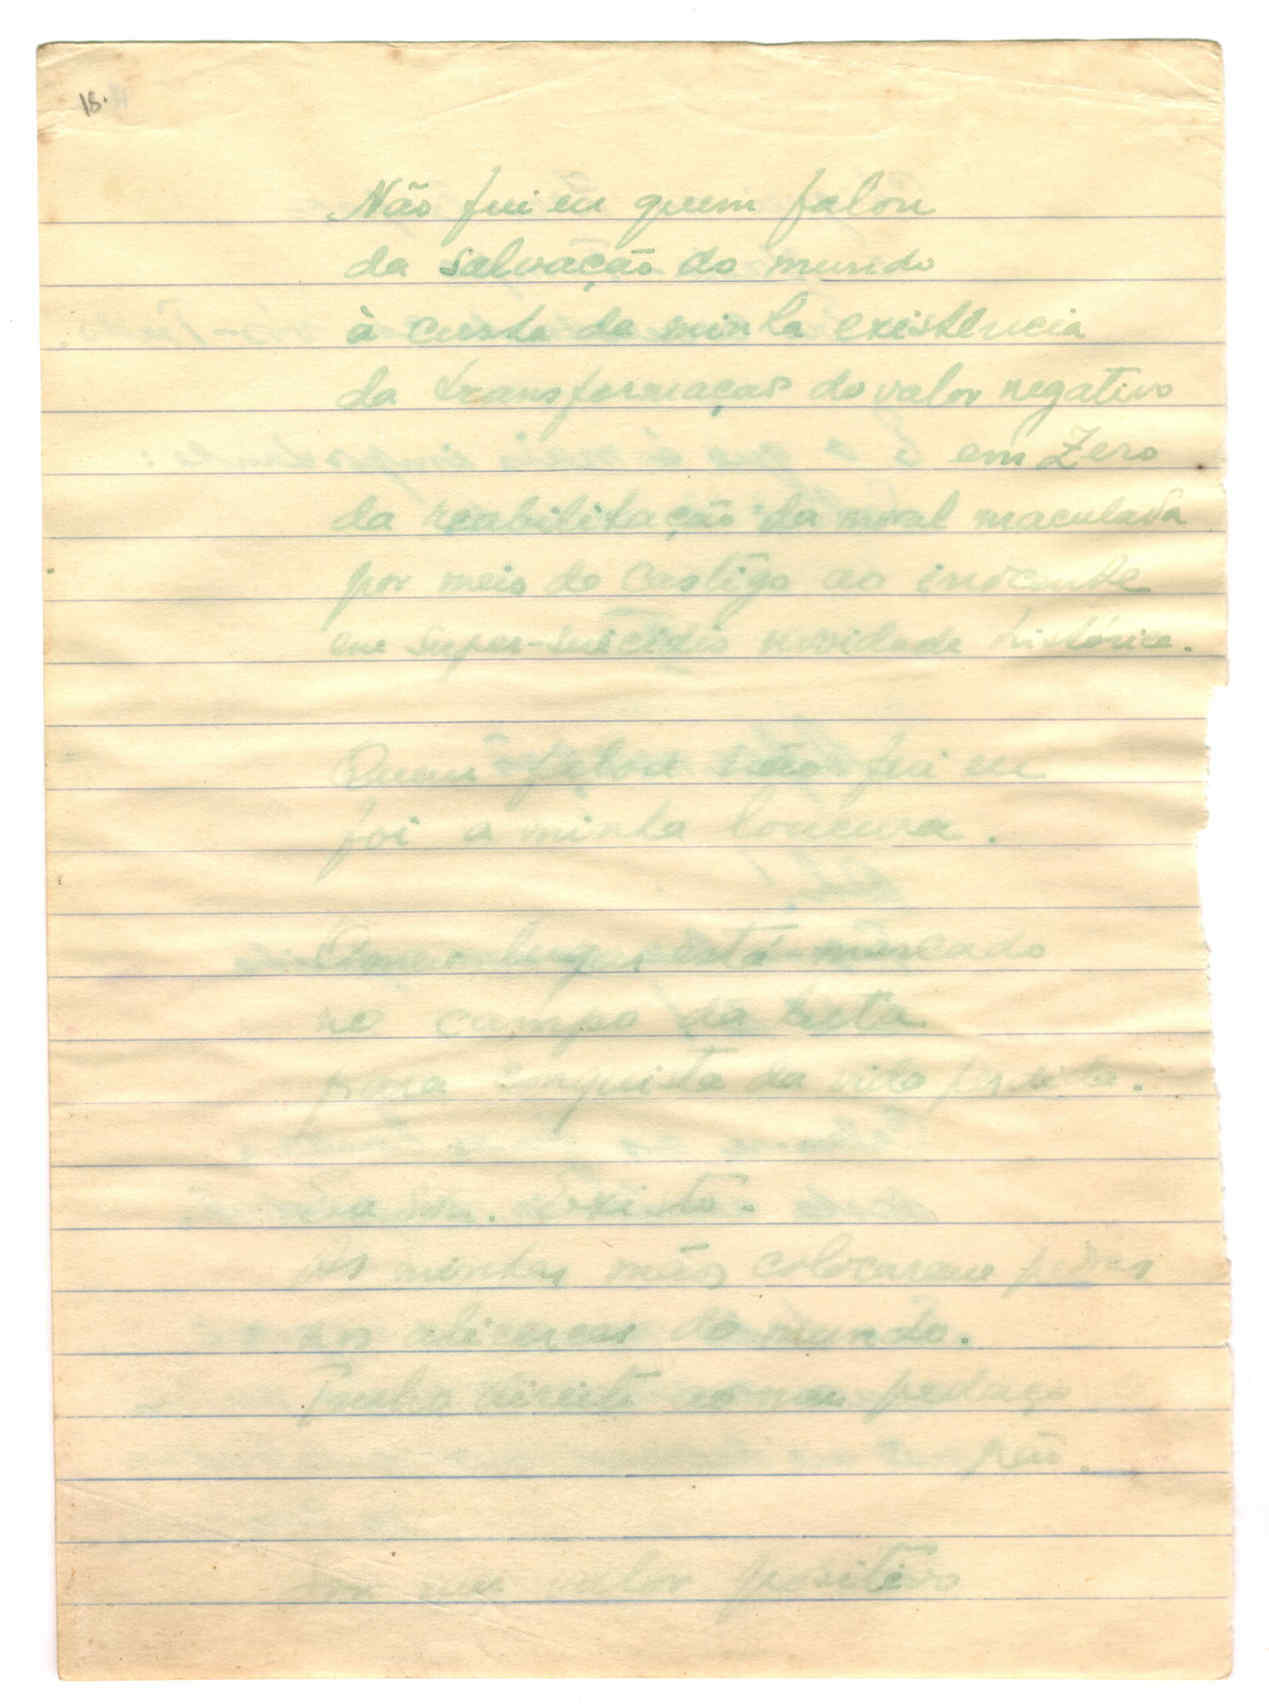 18.
Não fui eu quem falou
da salvação do mundo
à custa de minha existência
da transformação do valor negativo
em Zero
da reabilitação da moral maculada
por meio do castigo ao inocente
em super-suicídio novidade histórica.
Quem falou não fui eu
foi a minha loucura.
lugar está marcado
no campo da luta
para conquista da vida perdida.
Eu sou. Existo.
As minhas mãos colocaram pedras
nos alicerces do mundo.
Tenho direito pedaço
pão.
Sou um valor positivo